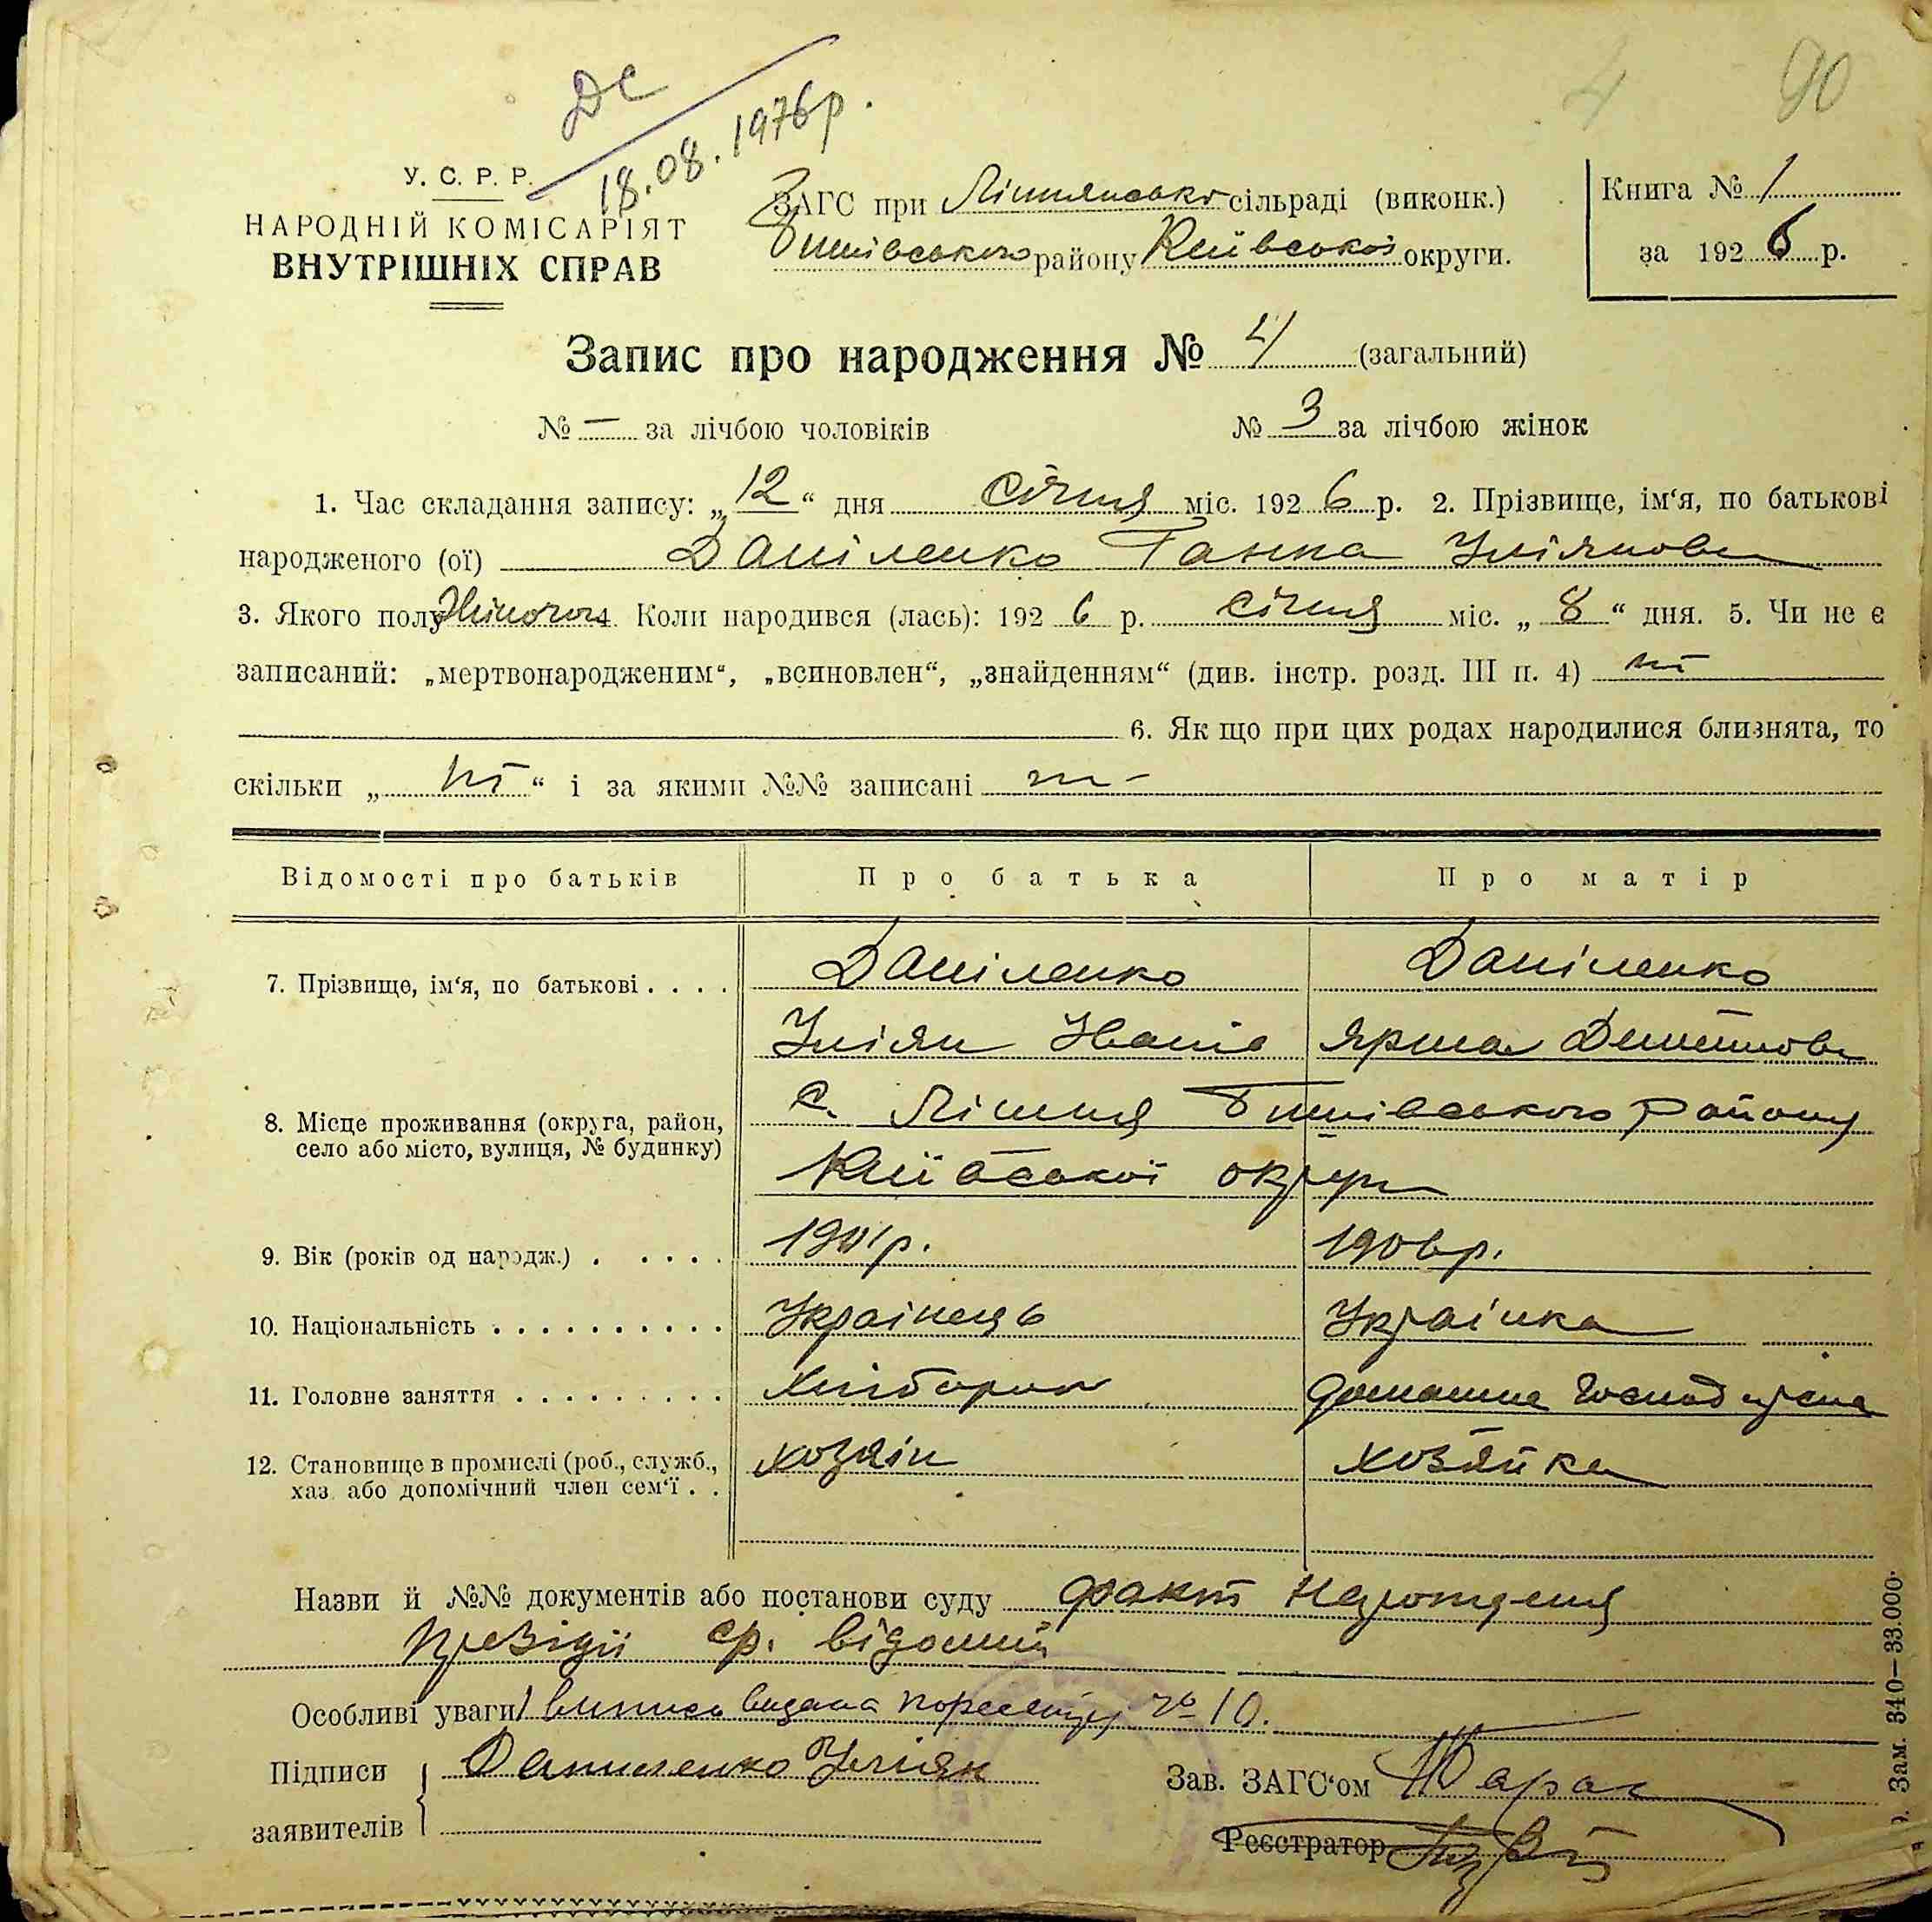 4 90
ДС
18.08.1976р.
У. С. Р. Р.
НАРОДНІЙ КОМІСАРІЯТ
ВНУТРІШНІХ СПРАВ
ЗАГС при Літнянські сільраді (виконк.)
району Київської округи.
Книга № 1
за 1926 р.
Запис про народження № 4 (загальний)
№ — за лічбою чоловіків № 3 за лічбою жінок
1. Час складання запису: „12“ дня січня міс. 1926 р. 2. Прізвище, ім‘я, по батькові
народженого (ої) Даніленко Ганна Улянова
3. Якого полу Жіночого Коли народився (лась): 1926 р. січня міс. „8“ дня. 5. Чи не є
записаний: „мертвонародженим“, „всиновлен“, „знайденням“ (див. інстр. розд. III п. 4) ні
6. Як що при цих родах народилися близнята, то
скільки „ні“ і за якими №№ записані
Відомості про батьків Про батька Про матір
7. Прізвище, ім‘я, по батькові . . . . Даніленко Даніленко
Іванів
8. Місце проживання (округа, район,
село або місто, вулиця, № будинку)
с. району
Київської округи
9. Вік (років од народж.) . . . . . 1901р. 1906р.
10. Національність . . . . . . . . . . Українець Українка
11. Головне заняття . . . . . . . . . Хлібороб домашнє
12. Становище в промислі (роб., служб.,
хаз. або допомічний член сем‘ї . . хозяїн хозяйка
Назви й №№ документів або постанови суду факт народження
Президії ср. відомий
Особливі уваги) випись видана № 10.
Підписи
заявителів
Даниленко Улян
Зав. ЗАГС‘ом
Реєстратор
Зам. 340—33.000.